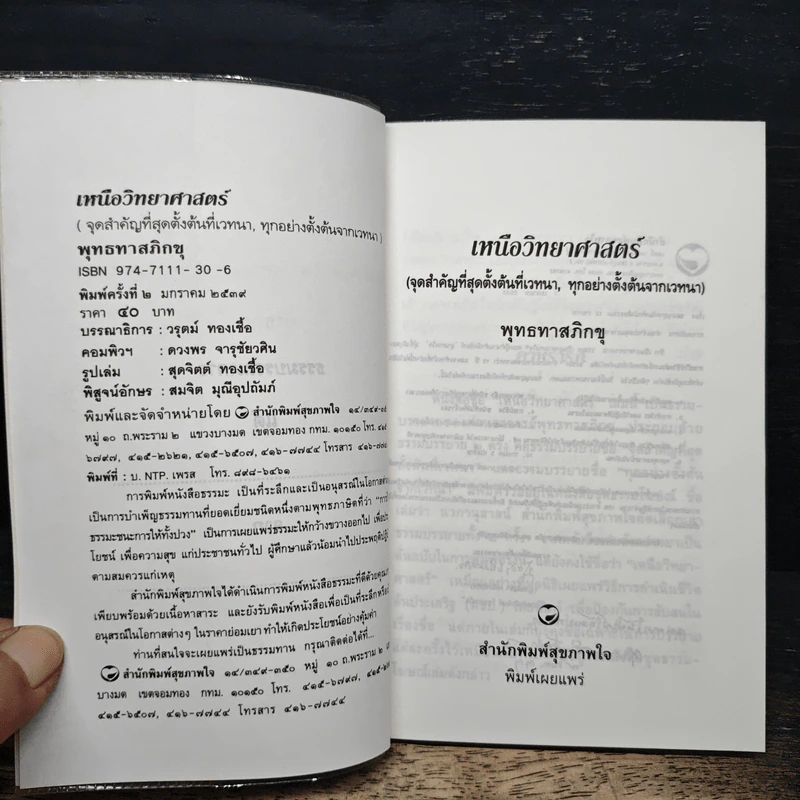 เหนือวิทยาศาสตร์
( จุดสำคัญที่สุดตั้งต้นที่เวทนา, ทุกอย่างตั้งต้นจากเวทนา )
พุทธทาสภิกขุ
ISBN 974-7111- 30 -6
พิมพ์ครั้งที่ ๒ มกราคม ๒๕๓๙
ราคา ๔๐ บาท
บรรณาธิการ : วรุตม์ ทองเชื้อ
คอมพิวฯ : ดวงพร จารุชัยวศิน
รูปเล่ม : สุดจิตต์ ทองเชื้อ
พิสูจน์อักษร : สมจิต มุณีอุปถัมภ์
พิมพ์และจัดจำหน่ายโดย สำนักพิมพ์สุขภาพใจ ๑๔/๓๔๙-๓๕
หมู่ ๑๐ ถ.พระราม ๒ แขวงบางมด เขตจอมทอง กทม. ๑๐๑๕๐ โทร.
๖๗๙๗, ๔๑๕-๒๖๒๑, ๔๑๕-๖๕๐๗, ๔๑๖-๗๗๔๔ โทรสาร ๔๑๖-๗๗
พิมพ์ที่ : บ. NTP. เพรส โทร. ๘๙๘-๖๔๖๑
การพิมพ์หนังสือธรรมะ เป็นที่ระลึกและเป็นอนุสรณ์ในโอกาส
เป็นการบำเพ็ญธรรมทานที่ยอดเยี่ยมชนิดหนึ่งตามพุทธภาษิตที่ว่า "การ
ธรรมะชนะการให้ทั้งปวง" เป็นการเผยแพร่ธรรมะให้กว้างขวางออกไป เพื่อ
โยชน์ เพื่อความสุข แก่ประชาชนทั่วไป ผู้ศึกษาแล้วน้อมนำไปประพฤติ
ตามสมควรแก่เหตุ
สำนักพิมพ์สุขภาพใจได้ดำเนินการพิมพ์หนังสือธรรมะที่ดีด้วยคุณ
เพียบพร้อมด้วยเนื้อหาสาระ และยังรับพิมพ์หนังสือเพื่อเป็นที่ระลึก
อนุสรณ์ในโอกาสต่างๆ ในราคาย่อมเยา ทำให้เกิดประโยชน์อย่างคุ้มค่า
ท่านที่สนใจจะเผยแพร่เป็นธรรมทาน กรุณาติดต่อได้ที่...
สำนักพิมพ์สุขภาพใจ ๑๔/๓๔๙-๓๕๐ หมู่ ๑๐ ถ.พระราม ๒
บางมด เขตจอมทอง กทม. ๑๐๑๕๐ โทร. ๔๑๕-๖๗๙๗,
๔๑๕-๖๕๐๗, ๔๑๖-๗๗๔๔ โทรสาร ๔๑๖-๗๗๔๔
เหนือวิทยาศาสตร์
(จุดสำคัญที่สุดตั้งต้นที่เวทนา, ทุกอย่างตั้งต้นจากเวทนา)
พุทธทาสภิกขุ
สำนักพิมพ์สุขภาพใจ
พิมพ์เผยแพร่